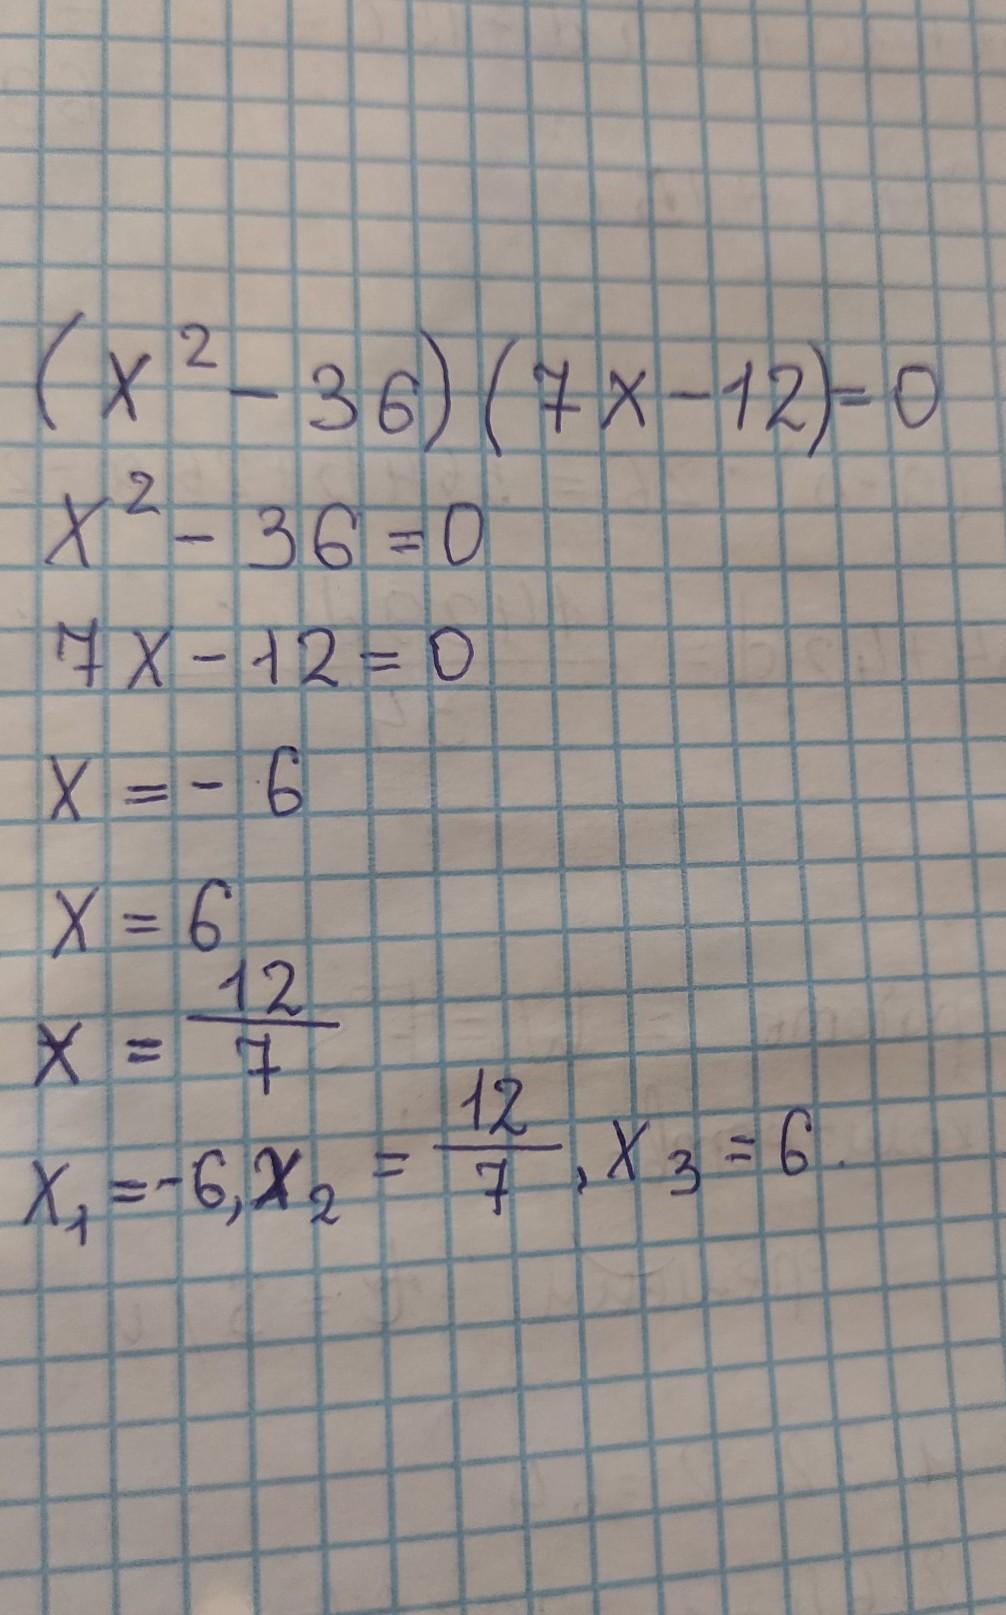 (x² - 36)(7x - 12) = 0
x² - 36 = 0
7x - 12 = 0
x = - 6
x = 6
x = 12/7
x₁ = -6, x₂ = 12/7, x₃ = 6.